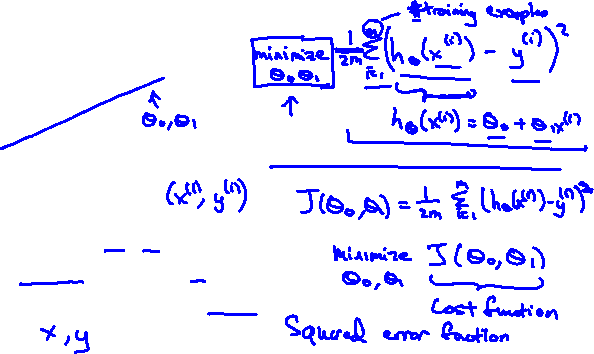 #training examples
minimize θ₀ θ₁ 1/2m Σᵢ₌₁ᵐ (hθ(x⁽ⁱ⁾) - y⁽ⁱ⁾)²
θ₀, θ₁
hθ(x⁽ⁱ⁾) = θ₀ + θ₁x⁽ⁱ⁾
(x⁽ⁱ⁾, y⁽ⁱ⁾)
J(θ₀, θ₁) = 1/2m Σᵢ₌₁ᵐ (hθ(x⁽ⁱ⁾) - y⁽ⁱ⁾)²
minimize J(θ₀, θ₁)
θ₀, θ₁
Cost function
x, y
Squared error fuction